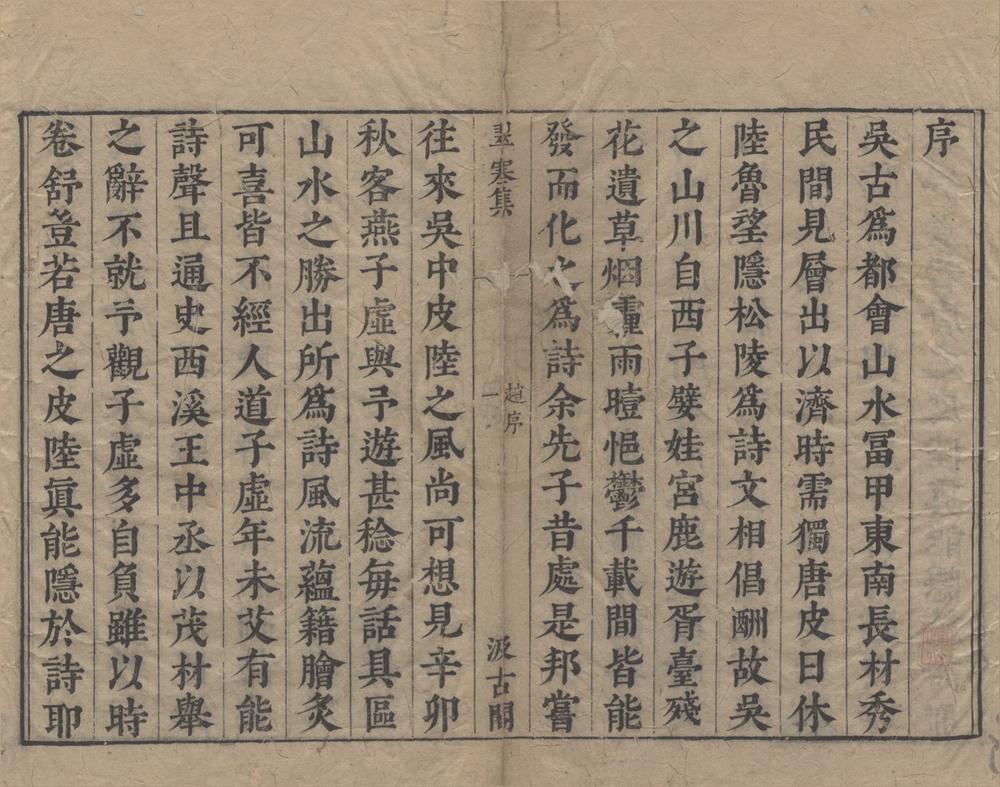 序
吳古爲都會山水冨甲東南長材秀
民間見層出以濟時需獨唐皮日休
陸魯望隱松陵爲詩文相倡酬故吳
之山川自西子孽娃宮鹿遊胥臺殘
花遺草烟霾雨曀悒鬱千載間皆能
發而化之爲詩余先子昔處是邦嘗
翠寒集
趙序
一
汲古閣
往來吳中皮陸之風尚可想見辛卯
秋客燕子虛與予遊甚稔每話具區
山水之勝出所爲詩風流蘊籍膾炙
可喜皆不經人道子虛年未艾有能
詩聲且通史西溪王中丞以茂材舉
之辭不就予觀子虛多自負雖以時
卷舒豈若唐之皮陸眞能隱於詩耶